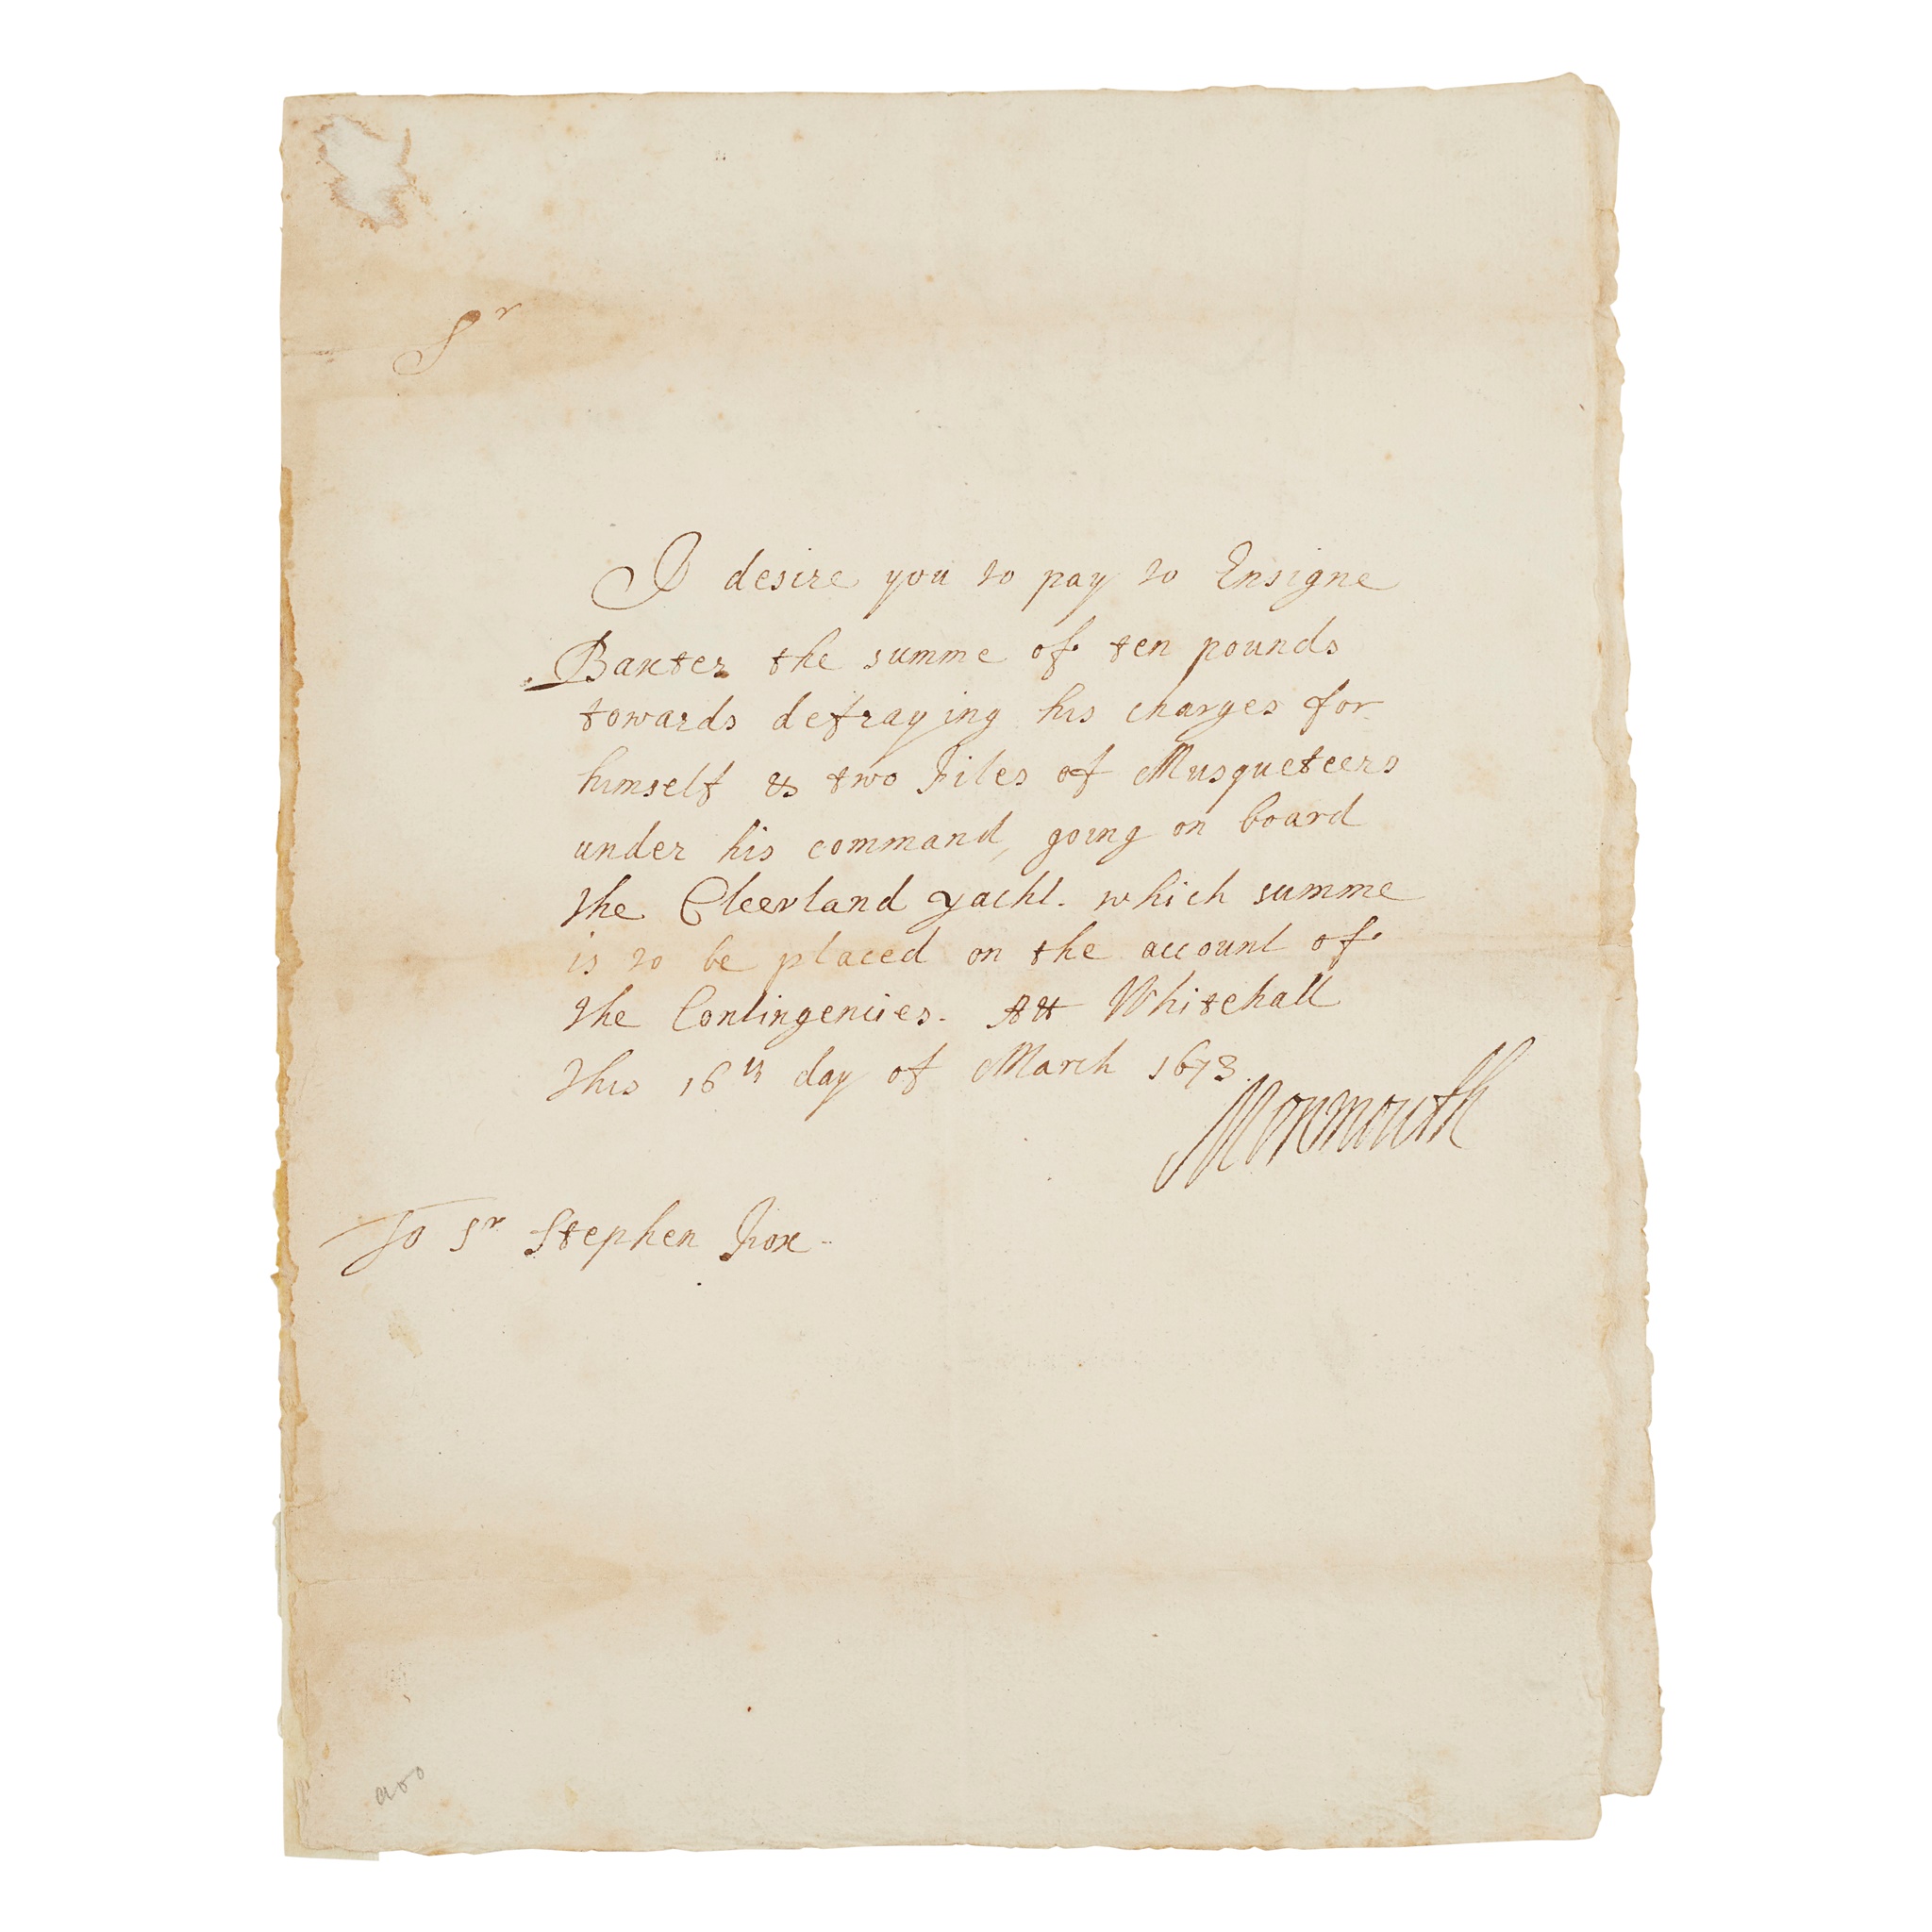 Sr
I desire you to pay to Ensigne
Baxter the summe of ten pounds
towards defraying his charges for
himself & two Files of Musqueteers
under his command, going on board
the Cleevland yacht. which summe
is to be placed on the account of
the Contingencies. Att Whitehall
this 16th day of March 1673.
Monmouth
To Sr Stephen Fox